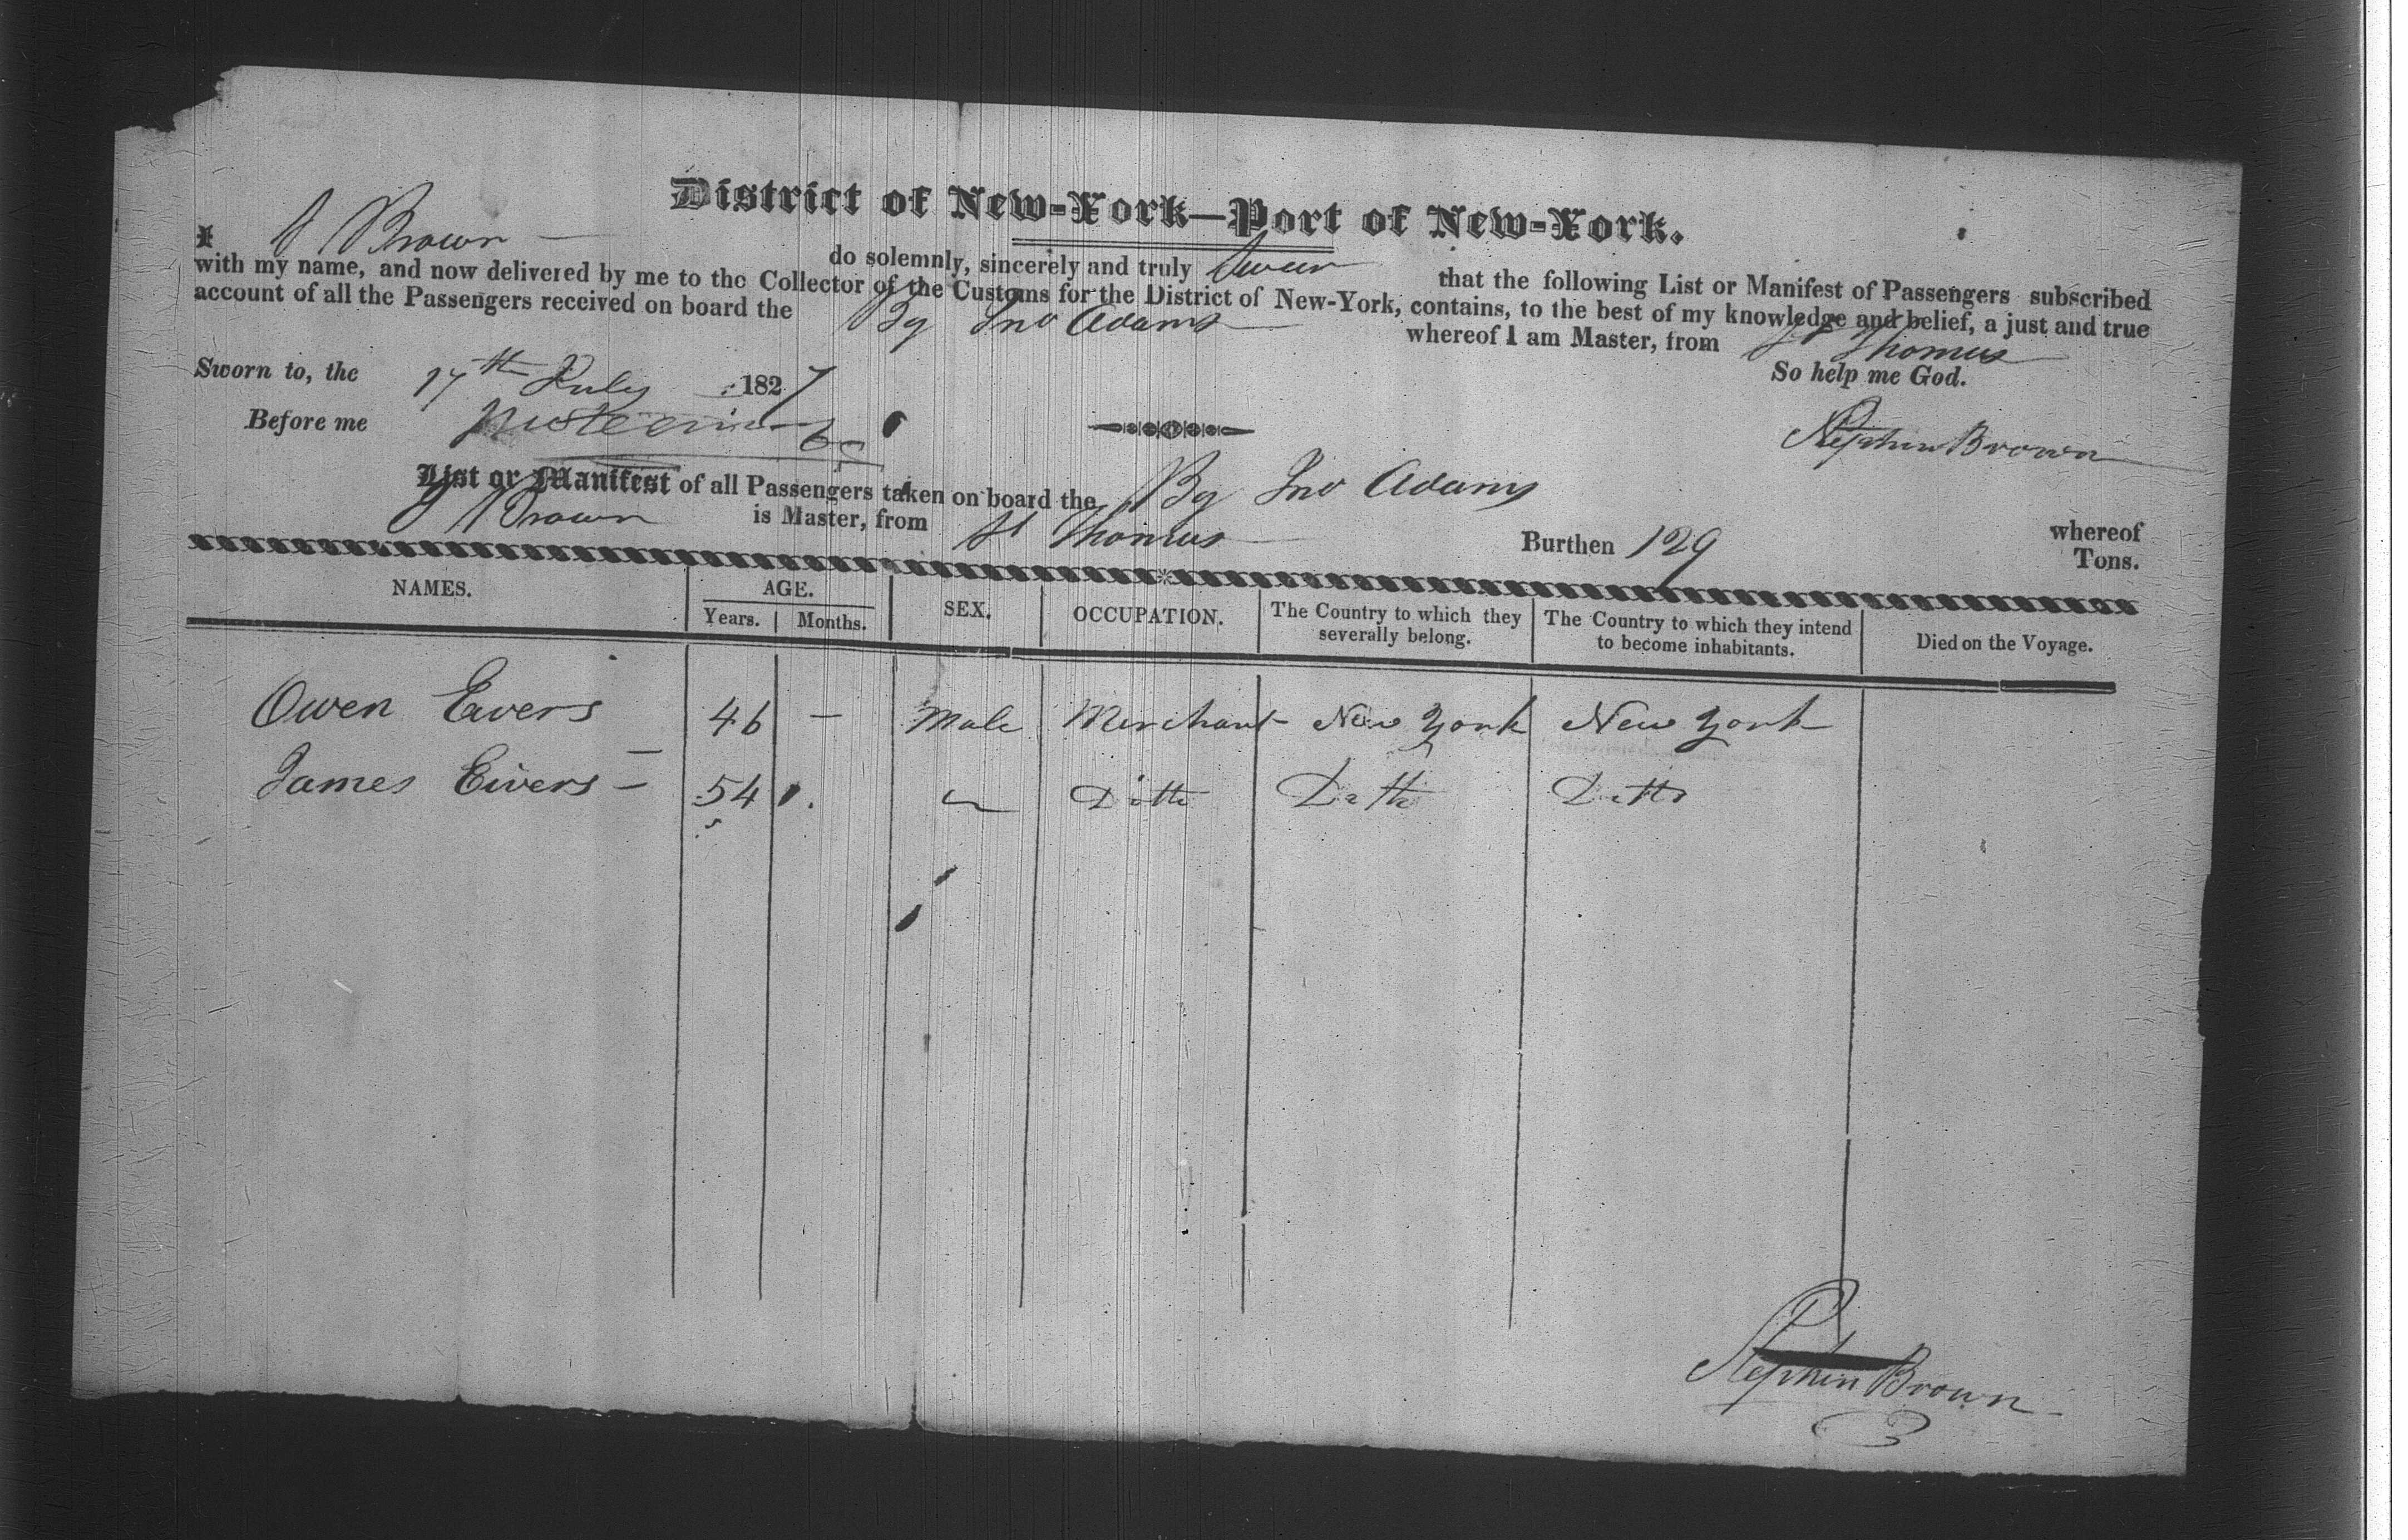 District of New-York—Port of New-York.
I S Brown — do solemnly, sincerely and truly Swear that the following List or Manifest of Passengers subscribed
with my name, and now delivered by me to the Collector of the Customs for the District of New-York, contains, to the best of my knowledge and belief, a just and true
account of all the Passengers received on board the Bg Jno Adams whereof I am Master, from St Thomas
So help me God.
Sworn to, the 17th July 1827
Before me
Stephen Brown
List or Manifest of all Passengers taken on board the Bg Jno Adams whereof
S Brown is Master, from St Thomas Burthen 129 Tons.
NAMES. AGE. SEX. OCCUPATION. The Country to which they severally belong. The Country to which they intend to become inhabitants. Died on the Voyage.
Years. Months.
Owen Eivers 46 — Male Merchant New York New York
James Eivers — 54 Ditto Ditto Ditto
Stephen Brown